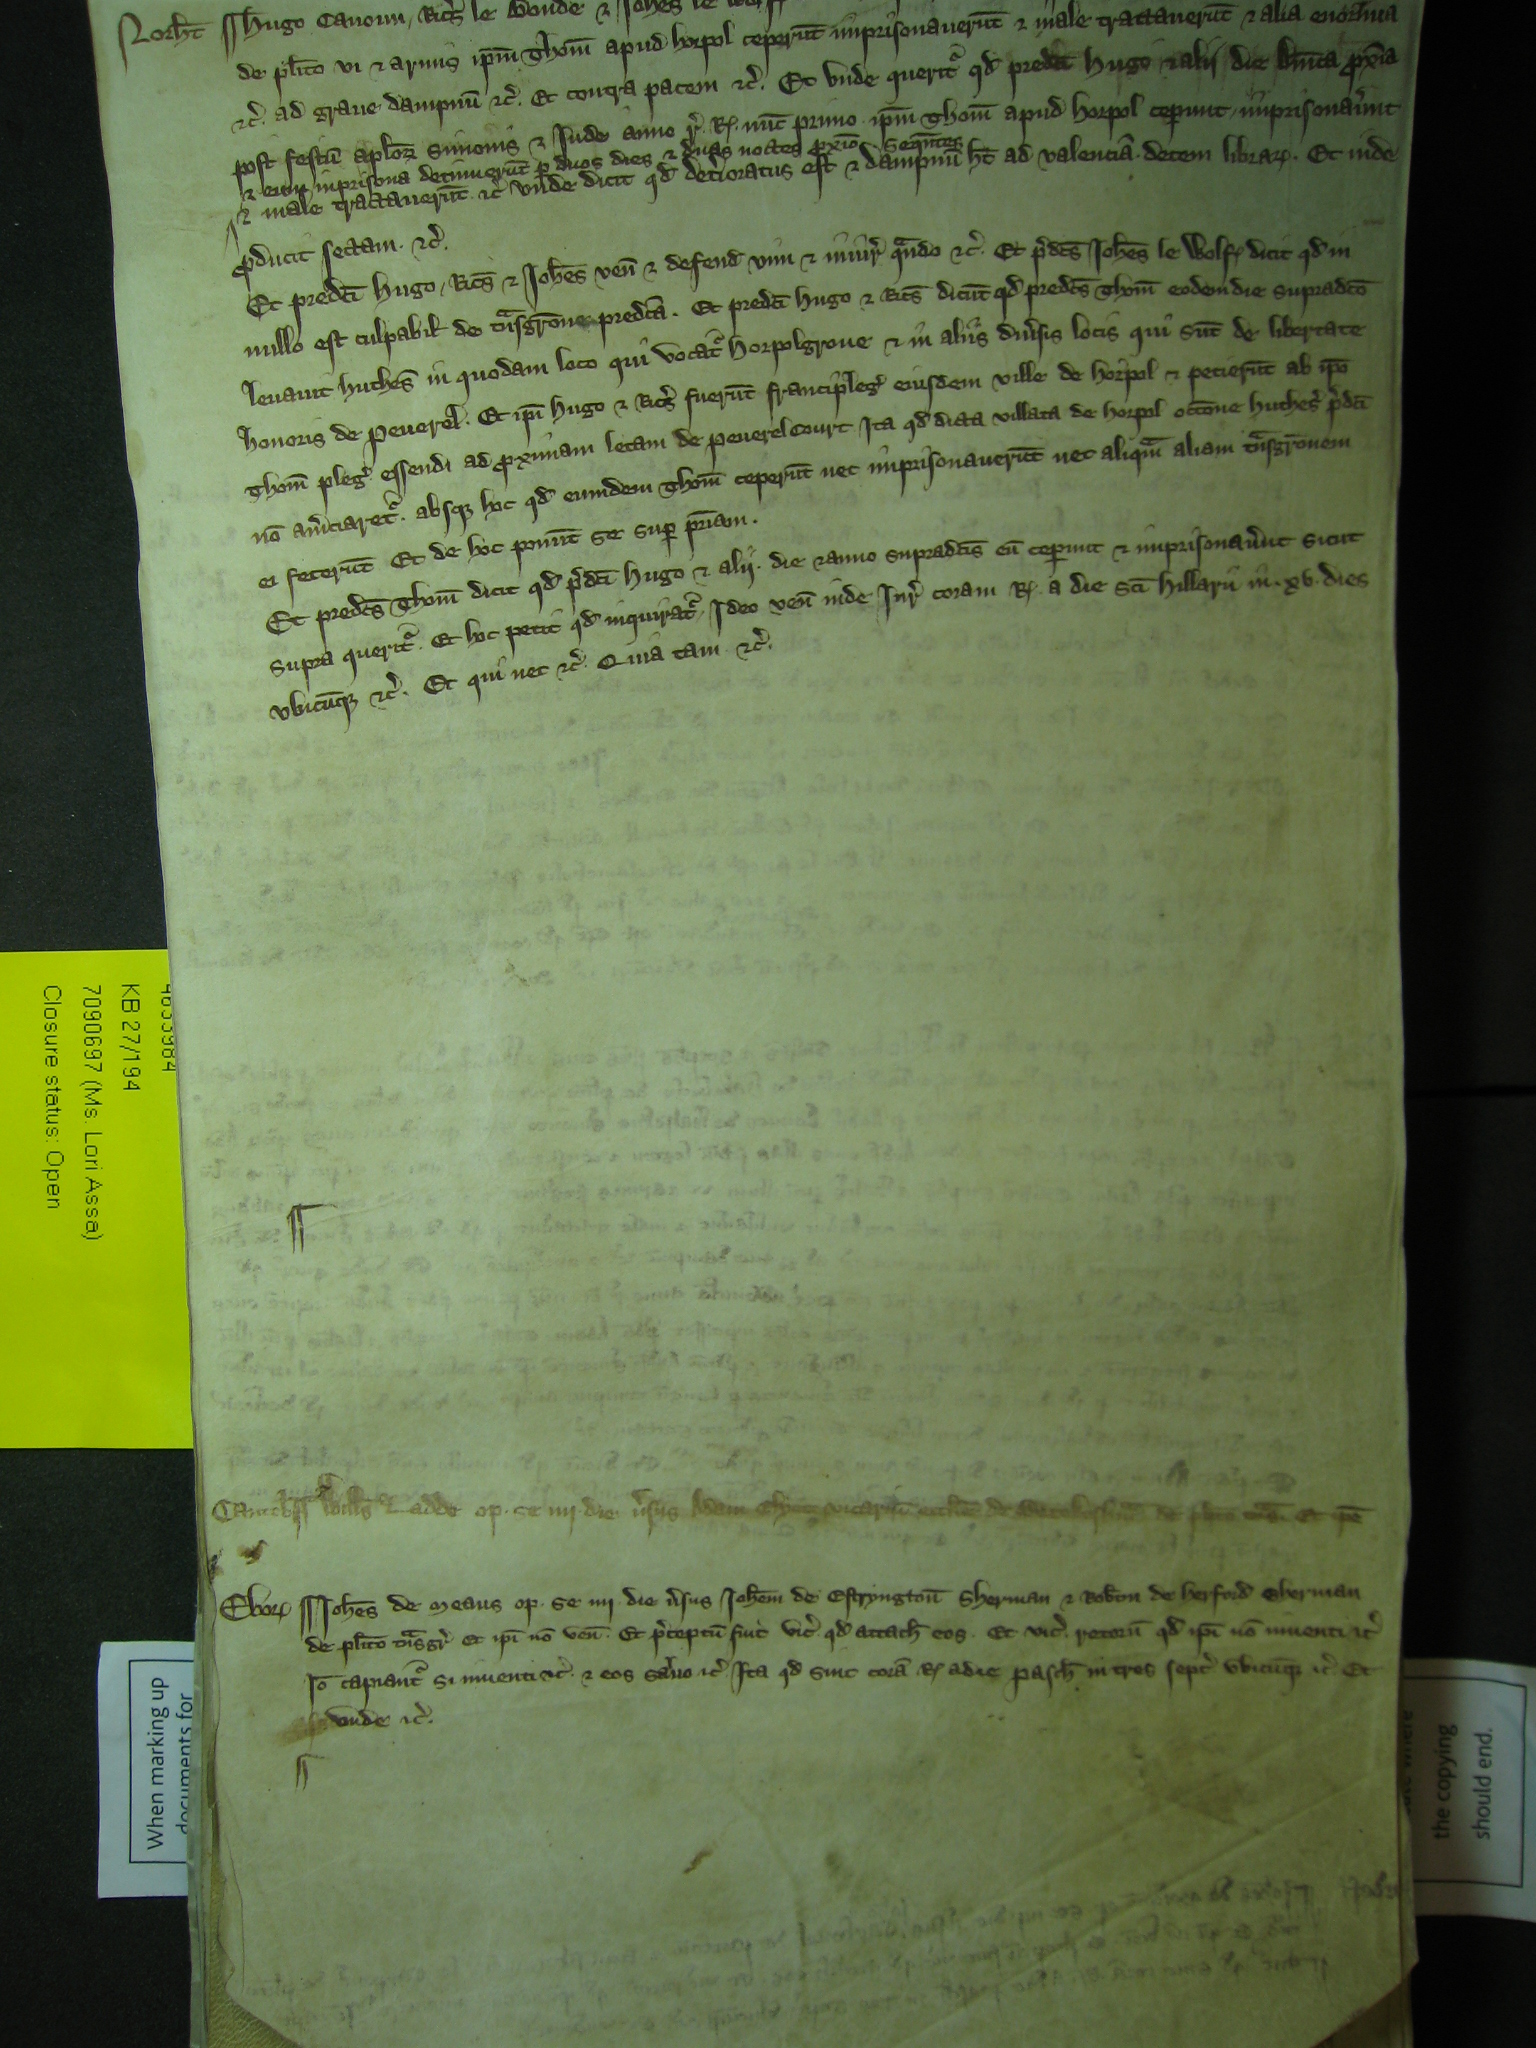 Norht Hugo Canoun, Ric̄s le Bonde & Joh̄es le Wolf
de pl̄ito vi & armis ip̄m Thom̄ apud horpol ceperūt imprisonauerūt & male tractauerūt & alia enormia
&c̄. ad graue dampnū &c̄. Et contra pacem &c̄. Et vnde querit᷑ qd̄ pred̄ci Hugo & alij die Dn̄ica p̄xīa
post festū ap̄loꝝ Simonis & Jude anno r̄. R. nūc primo ip̄m Thom̄ apud horpol ceperunt, imprisonau̓nt
& eum inprisona detinuerūt p̱ duos dies & duas noctes p̱xīo sequn̄tes
& male tractauerūt &c̄ vnde dicit qd̄ deterioratus est & dampnū h̄t ad valenciā decem librar̄. Et inde
p̱ducit sectam. &c̄.
Et pred̄ci Hugo, Ric̄s & Joh̄es ven̄ & defend̄ vim & iniur̄ qn̄do &c̄. Et p̄d̄cs Joh̄es le Wolf dicit qd̄ in
nullo est culpabil̄ de tn̄sgr̄one pred̄ca. Et pred̄ci Hugo & Ric̄s dicūt qd̄ pred̄cs Thom̄ eodem die supradc̄o
leuauit huthes̄ in quodam loco qui vocat᷑ Horpolgroue & in alijs diu̓sis locis qui sūt de libertate
honoris de Peuerel. Et ip̄i Hugo & Ric̄s fuerūt franciplegˀ eiusdem ville de horpol & petierūt ab ip̄o
Thom̄ plegˀ essendi ad p̱ximam letam de Peuerel Court Ita qd̄ dicta villata de horpol occōne huthes̄ p̄d̄ci
nō am̄ciaret᷑. absqꝫ hoc qd̄ eumdem Thom̄ ceperūt nec imprisonauerūt nec aliqm̄ aliam tn̄sgr̄onem
ei fecerūt Et de hoc ponūt se sup̱ pr̄iam.
Et pred̄cs Thom̄ dicit qd̄ p̄d̄ci Hugo & alij. die & anno supradc̄is eū ceperunt & imprisonau̓nt sicut
supra querit᷑. Et hoc petit qd̄ inquirat᷑, Ideo ven̄ inde Jur̄ coram R. a die sc̄i Hillarij in. xv. dies
vbicūqꝫ &c̄. Et qui nec &c̄. Quia tam &c̄.
Cantebr̄ Will̄s Ladde op. se iiij. die v̓sus Adam vicariū eccl̄ie de de pl̄ito tn̄s. Et ip̄e
Ebor̄ Joh̄es de Meaus op. se iiij. die v̓sus Joh̄em de Estryngton̄ Sherman & Rob̄tm de Herford Sherman
de pl̄ito tn̄sgr̄ et ip̄i nō ven̄. Et p̄ceptū fuit vic̄. qd̄ attach̄ eos. Et vic̄. retorn̄ qd̄ ip̄i nō inuenti &c̄
Iō capiant᷑ si inuenti &c̄. & eos saluo &c̄. Ita qd̄ sint corā R. a die pasch̄ in tres sept̄ vbicūqꝫ &c̄ Et
vnde &c̄.
4633984
KB 27/194
7090697 (Ms. Lori Assa)
Closure status: Open
When marking up
documents for
the copying
should end.